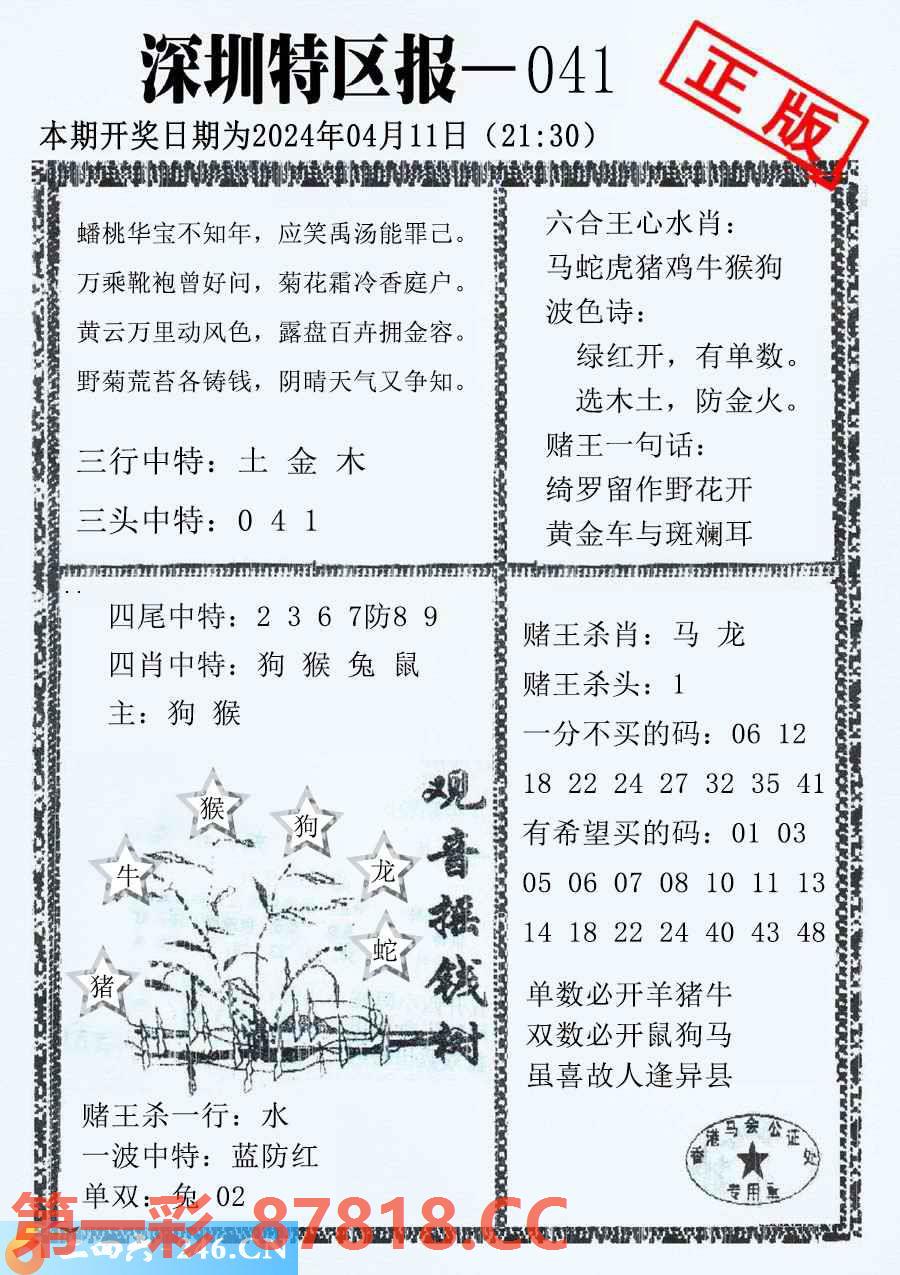 深圳特区报—041
正版
本期开奖日期为2024年04月11日（21:30）
蟠桃华宝不知年，应笑禹汤能罪己。
万乘靴袍曾好问，菊花霜冷香庭户。
黄云万里动风色，露盘百卉拥金容。
野菊荒苔各铸钱，阴晴天气又争知。
三行中特：土 金 木
三头中特：0 4 1
六合王心水肖：
马蛇虎猪鸡牛猴狗
波色诗：
绿红开，有单数。
选木土，防金火。
赌王一句话：
绮罗留作野花开
黄金车与斑斓耳
四尾中特：2 3 6 7防8 9
四肖中特：狗 猴 兔 鼠
主：狗 猴
猴
狗
牛
龙
蛇
猪
观音摇钱树
赌王杀一行：水
一波中特：蓝防红
单双：兔 02
赌王杀肖：马 龙
赌王杀头：1
一分不买的码：06 12
18 22 24 27 32 35 41
有希望买的码：01 03
05 06 07 08 10 11 13
14 18 22 24 40 43 48
单数必开羊猪牛
双数必开鼠狗马
虽喜故人逢异县
香港马会公证处
专用章
第一彩 87818.CC
246.CN